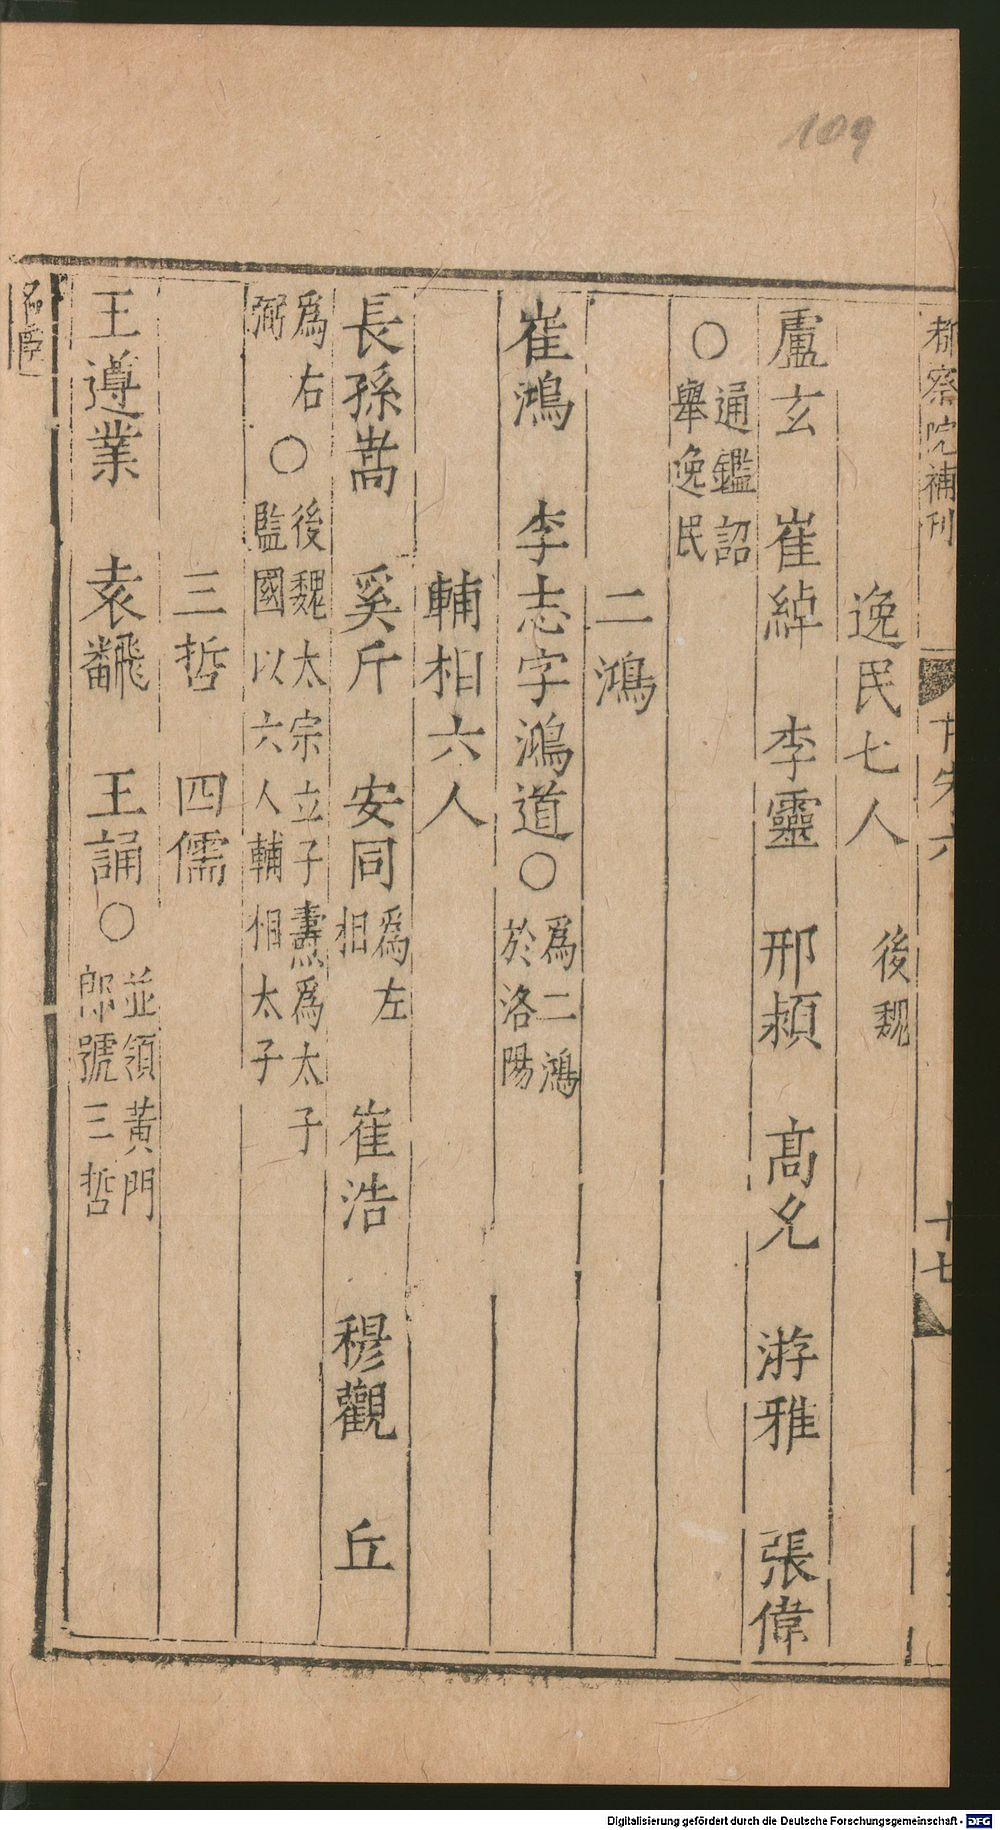 109
都察院補刊
十七
逸民七人 後魏
盧玄 崔綽 李靈 邢頴 高允 游雅 張偉
○通鑑詔舉逸民
二鴻
崔鴻 李志字鴻道○爲二鴻於洛陽
輔相六人
長孫嵩 奚斤 安同爲左相 崔浩 穆觀 丘
爲右弼○後魏太宗立子燾爲太子監國以六人輔相太子
三哲 四儒
王遵業 袁飜 王誦○並領黃門郎號三哲
Digitalisierung gefördert durch die Deutsche Forschungsgemeinschaft - DFG